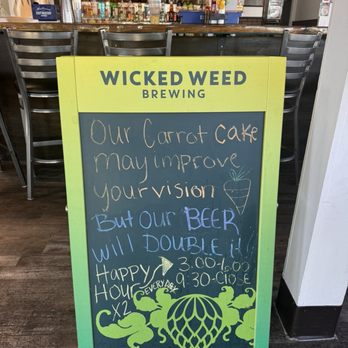 WICKED WEED
BREWING
Our Carrot cake
may improve
your vision
But our BEER
will DOUBLE it!
Happy 3:00-6:00
Hour 9:30-ClOSE
X2 EVERYDAY